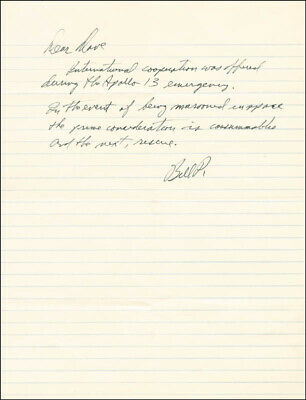 Dear Dave
International cooperation was offered
during the Apollo 13 emergency.
In the event of being marooned in space
the prime consideration is consummables
and the next, rescue.
Bill P.